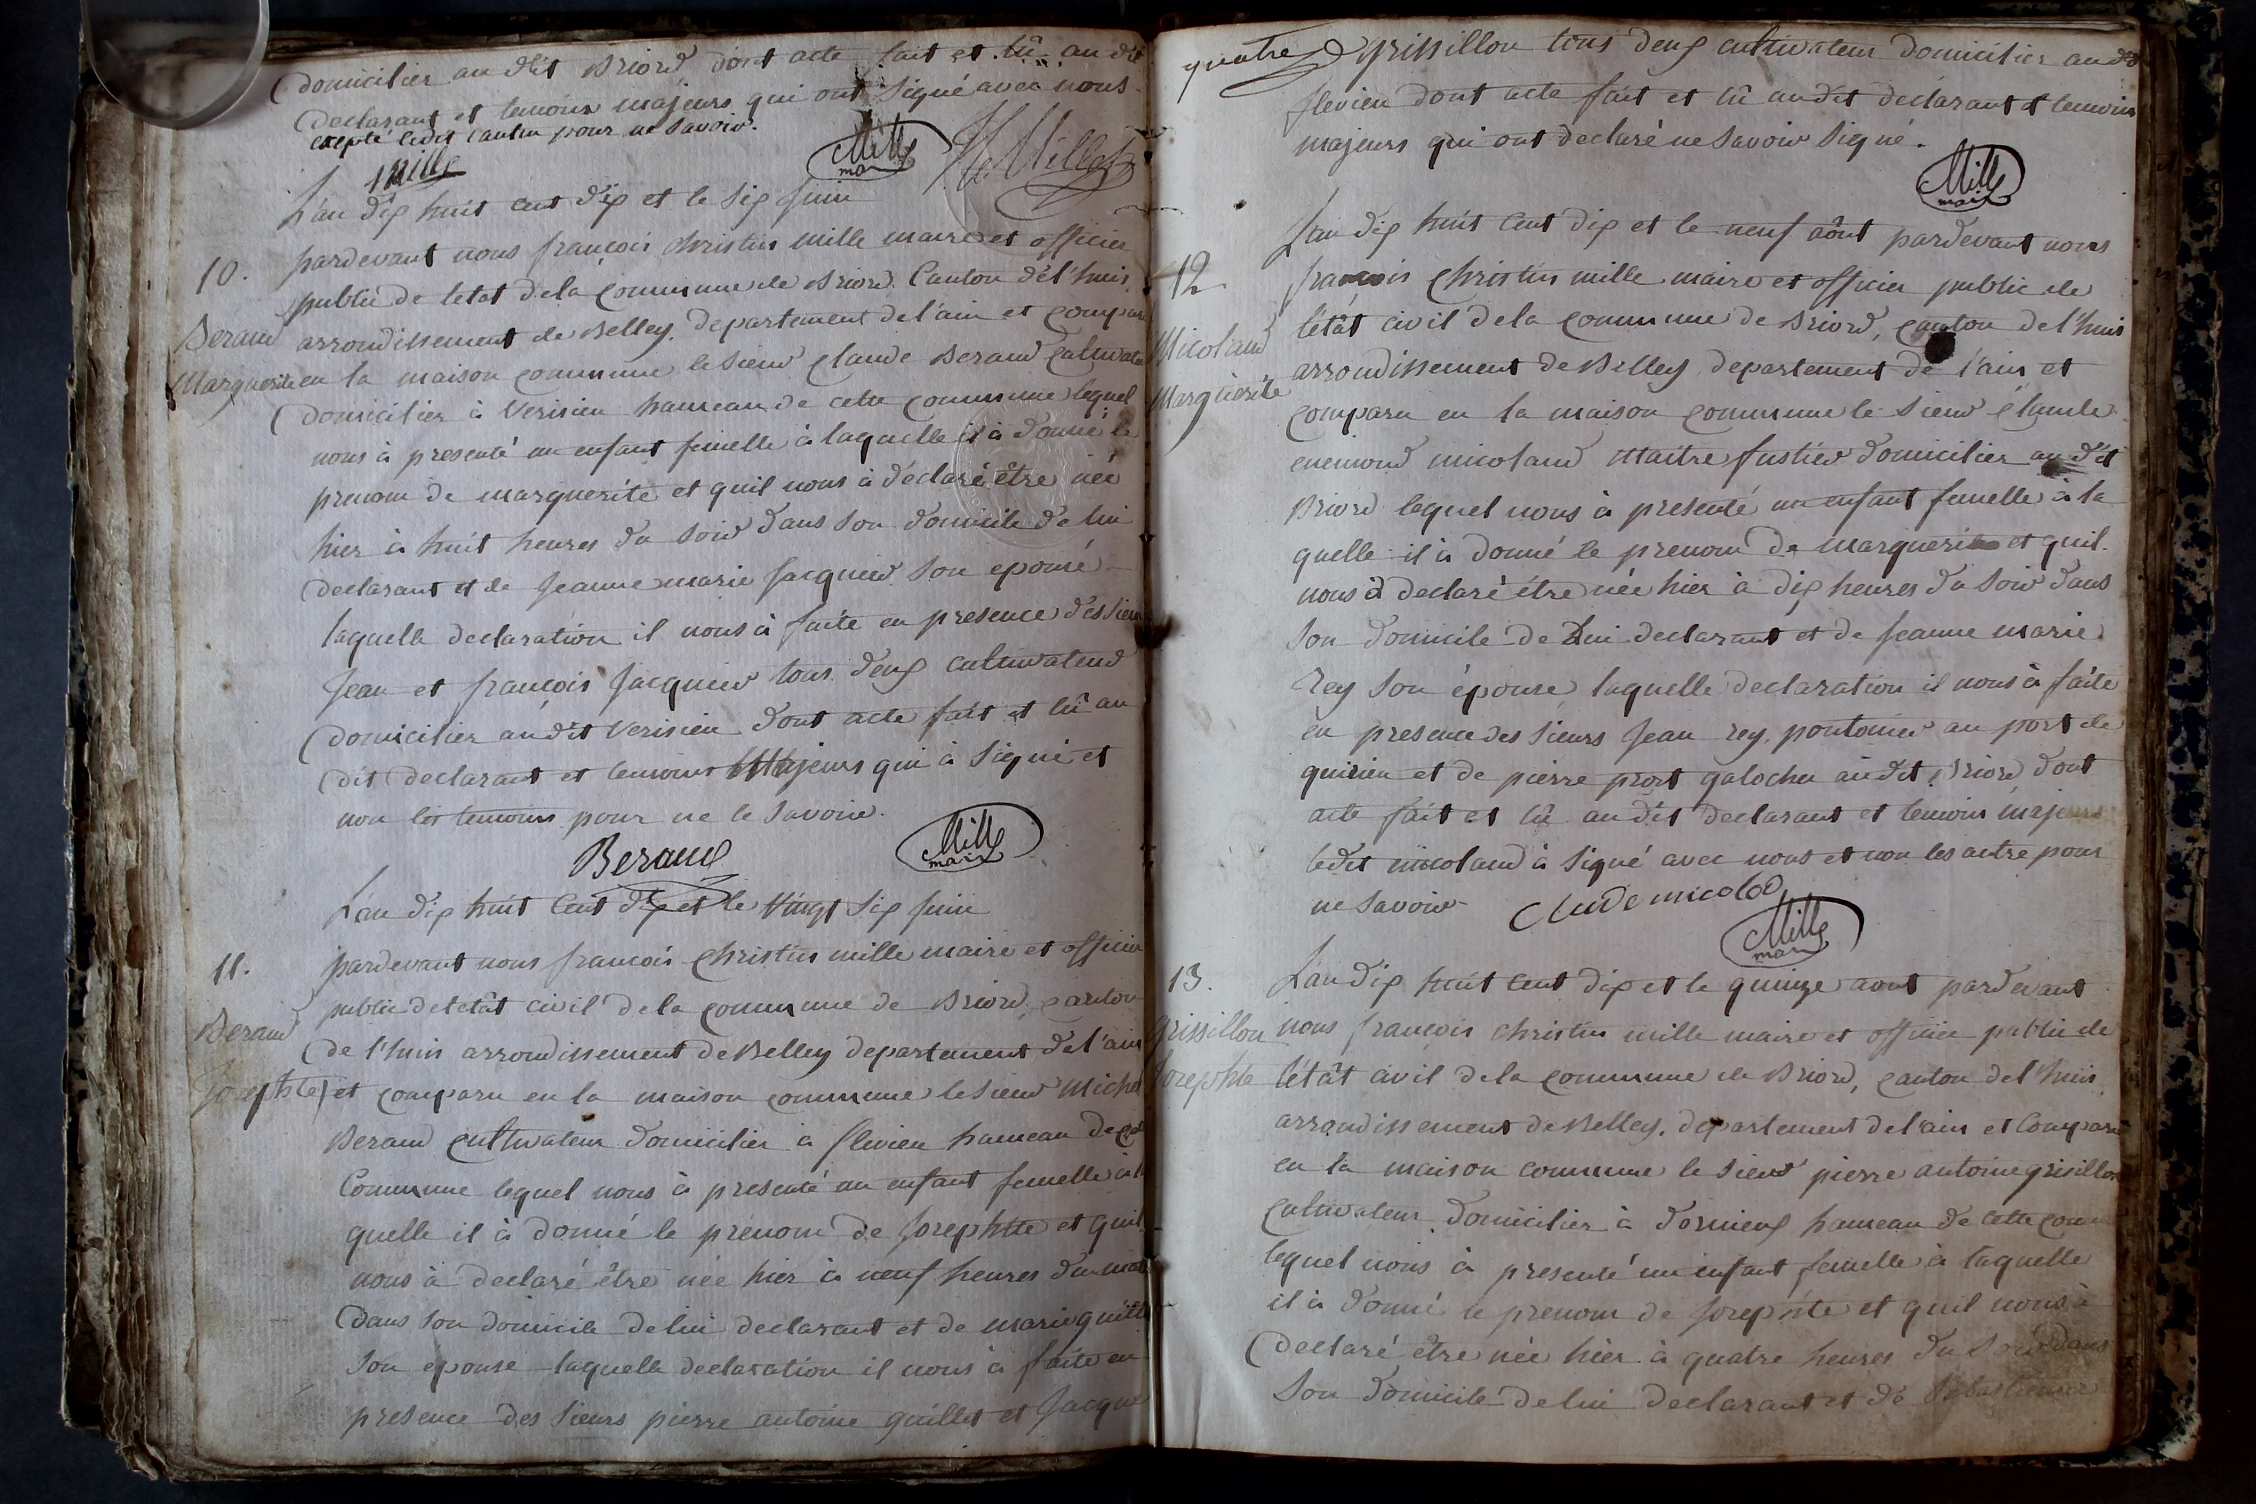 domicilier au dit Briord dont acte fait et lû au dit
declarant et temoins majeurs qui ont signé avec nous
excepté ledit pour ne savoir.
Mille
Mille
maire
Millet
L'an dix huit cent dix et le six juin
10.
Beraud
Marguerite
pardevant nous françois christin mille maire et officier
public de letat dela commune de Briord Canton de l'huis
arrondissement de Belley. departement de l'ain et compar
en la maison commune le sieur claude Beraud cultivateur
domicilier à Verisieu hameau de cette commune lequel
nous à presenté un enfant femelle à laquelle il à donné le
prenom de marguerite et quil nous à déclaré être née
hier à huit heures du soir dans son domicile de lui
declarant et de jeanne marie jacquier son epouse
laquelle declaration il nous à faite en presence des sieurs
jean et françois jacquier tous deux cultivateurs
domicilier au dit verisieu dont acte fait et lû au
dit declarant et temoins Majeurs qui à signé et
non les temoins pour ne le savoir.
Beraud
Mille
maire
L'an dix huit Cent dix et le vingt six juin
11.
Beraud
josephte
pardevant nous françois christin mille maire et officier
public deletât civil dela commune de Briord, canton
de l'huis arrondissement de Belley departement de l'ain
et comparu en la maison commune le sieur Michel
Beraud cultivateur domicilier à flevieu hameau de cet
Commune lequel nous à presenté un enfant femelle à la
quelle il à donné le prenom de josephtte et quil
nous à declaré être née hier à neuf heures du mat
dans son domicile de lui declarant et de marie guille
son epouse laquelle declaration il nous à faite en
presence des sieurs pierre antoine guillet et jacque
quatre grissillon tous deux cultivateur domicilier au dit
flevieu dont acte fait et lû au dit declarant et temoins
majeurs qui ont declaré ne savoir signé.
Mille
maire
12
Micoland
Marguerite
L'an dix huit cent dix et le neuf aôut pardevant nous
françois christin mille maire et officier public de
l'étât civil dela commune de Briord, canton de l'huis
arrondissement de Belley departement de l'ain et
comparu en la maison commune le sieur claude
enemond micoland maitre fustier domicilier au dit
Briord lequel nous à presenté un enfant femelle à la
quelle il à donné le prenom de marguerite et quil
nous à declaré être née hier à dix heures du soir dans
son domicile de lui declarant et de jeanne marie
rey son épouse laquelle declaration il nous à faite
en presence des sieurs jean rey pontonier au port de
quirieu et de pierre prost galocher au dit Briord dont
acte fait et lû au dit declarant et temoins majeurs
ledit micoland à signé avec nous et non les autre pour
ne savoir
Claude micolod
Mille
maire
13.
grissillon
josephte
L'an dix huit cent dix et le quinze aout pardevant
nous françois christin mille maire et officier public de
l'étât civil dela commune de Briord, canton de l'huis
arrondissement de Belley. departement de l'ain et Comparu
en la maison commune le sieur pierre antoine grisillon
cultivateur domicilier à dornieux hameau de cette comm
lequel nous à presenté un enfant femelle à laquelle
il à donné le prenom de josephte et quil nous à
declaré être née hier à quatre heures du soir dans
son domicile de lui declarant et de